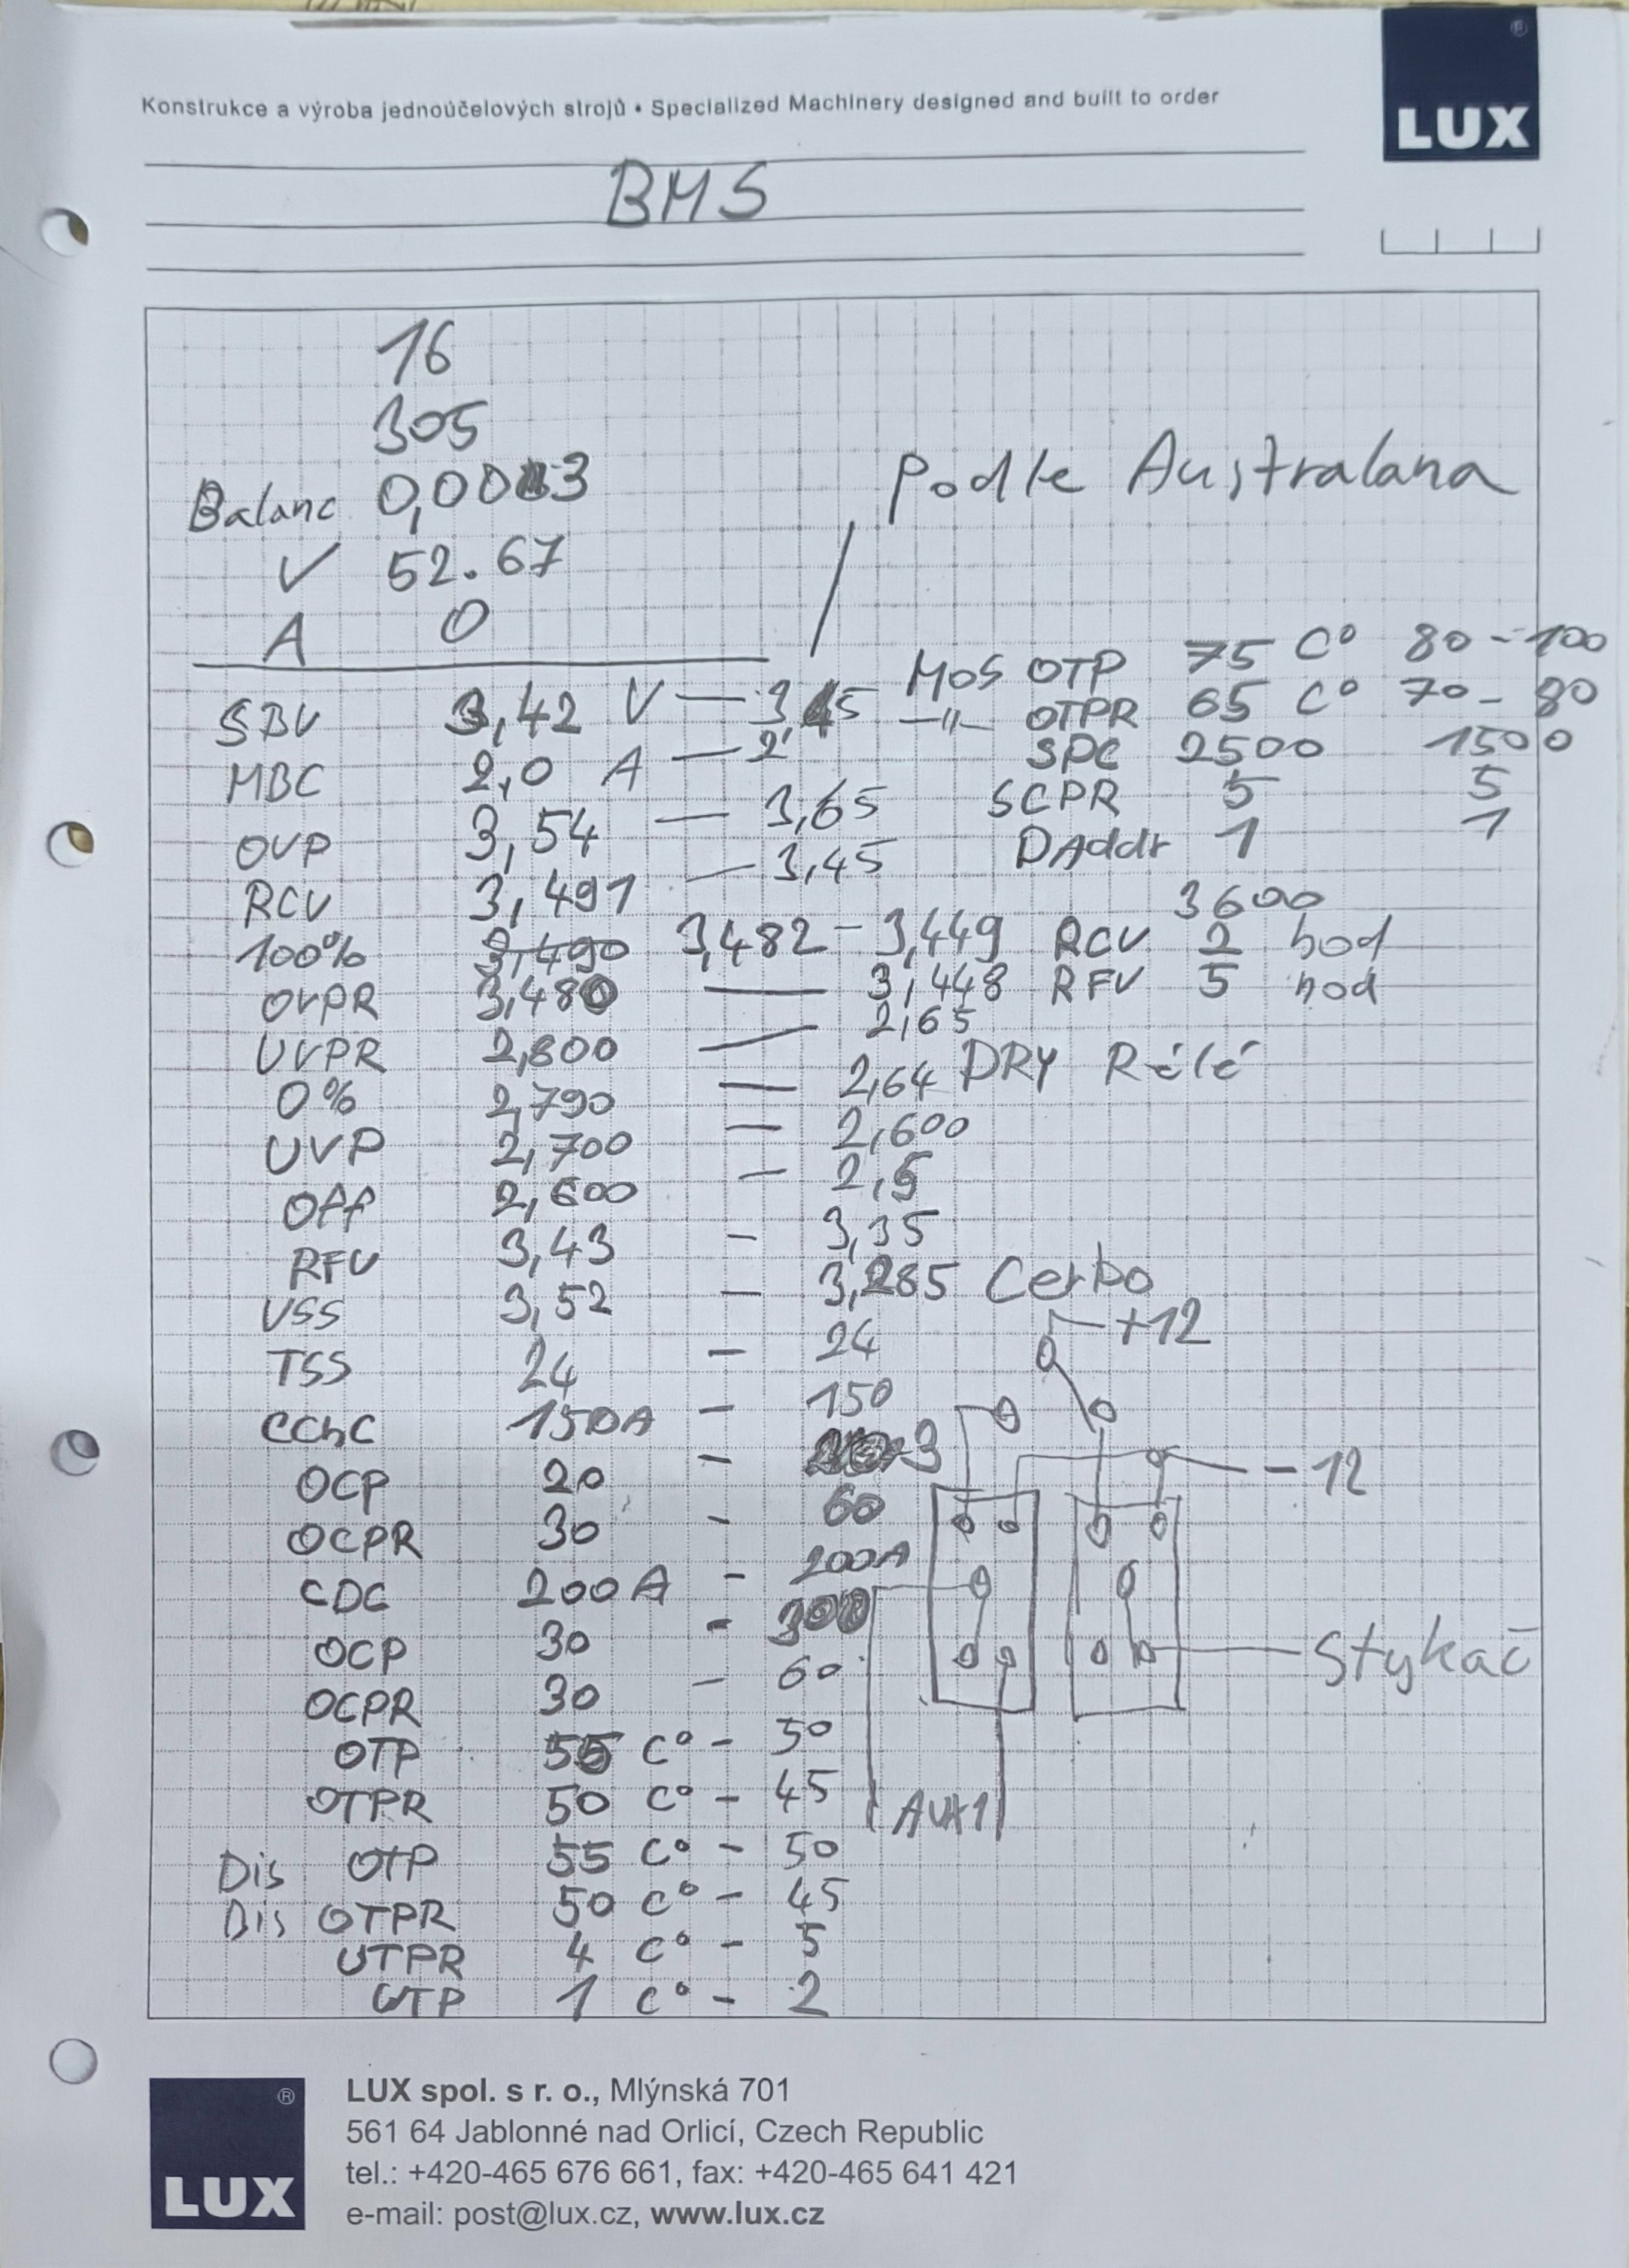 Konstrukce a výroba jednoúčelových strojů • Specialized Machinery designed and built to order
LUX
BMS
16
305
Balanc 0,003
V 52.67
A 0
Podle Australana
SBV 3,42 V — 3,45
MBC 2,0 A — 2
OVP 3,54 — 3,65
RCV 3,491 — 3,45
100% 3,490 3,482 — 3,449
OVPR 3,480 — 3,448
UVPR 2,800 — 2,65
0% 2,790 — 2,64
UVP 2,700 — 2,600
Off 2,600 — 2,5
RFV 3,43 — 3,35
VSS 3,52 — 3,285
TSS 24 — 24
CChC 150A — 150
OCP 20 — 3
OCPR 30 — 60
CDC 200A — 200A
OCP 30 — 300
OCPR 30 — 60
OTP 55 C° — 50
OTPR 50 C° — 45
Dis OTP 55 C° — 50
Dis OTPR 50 C° — 45
UTPR 4 C° — 5
UTP 1 C° — 2
MOS OTP 75 C° 80 - 100
—〃— OTPR 65 C° 70 - 80
SPC 2500 1500
SCPR 5 5
DAddr 1 1
3600
RCV 2 hod
RFV 5 hod
DRY Rélé
Cerbo
+12
-12
Stykač
AUX1
LUX
LUX spol. s r. o., Mlýnská 701
561 64 Jablonné nad Orlicí, Czech Republic
tel.: +420-465 676 661, fax: +420-465 641 421
e-mail: post@lux.cz, www.lux.cz